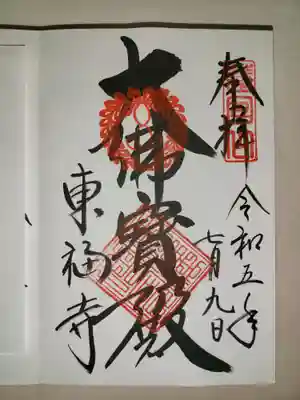 奉拝
令和五年
七月九日
大佛寳殿
東福寺